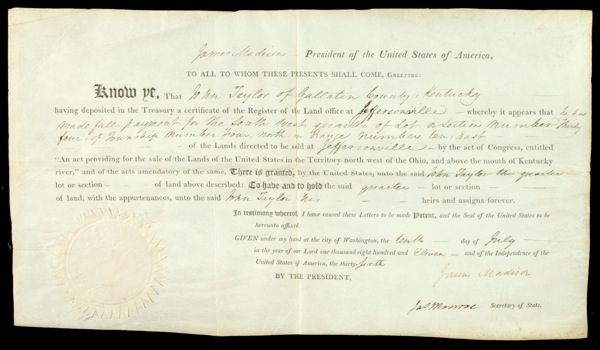 James Madison President of the United States of America,
TO ALL TO WHOM THESE PRESENTS SHALL COME, GREETING:
Know ye, That John Taylor of Gallatin County, Kentucky
having deposited in the Treasury a certificate of the Register of the Land office at Jeffersonville — whereby it appears that he has
made full payment for the South West quarter of Lot or Section number thirty
four, of Township number four north in Range number ten, east
— of the Lands directed to be sold at Jeffersonville — by the act of Congress, entitled
"An act providing for the sale of the Lands of the United States in the Territory north west of the Ohio, and above the mouth of Kentucky
river," and of the acts amendatory of the same, There is granted, by the United States, unto the said John Taylor the quarter
lot or section — of land above described: To have and to hold the said quarter — lot or section —
of land, with the appurtenances, unto the said John Taylor his — heirs and assigns forever.
In testimony whereof, I have caused these Letters to be made Patent, and the Seal of the United States to be
hereunto affixed.
GIVEN under my hand at the city of Washington, the tenth — day of July —
in the year of our Lord one thousand eight hundred and eleven — and of the Independence of the
United States of America, the thirty-sixth
BY THE PRESIDENT, James Madison
Jas Monroe Secretary of State.